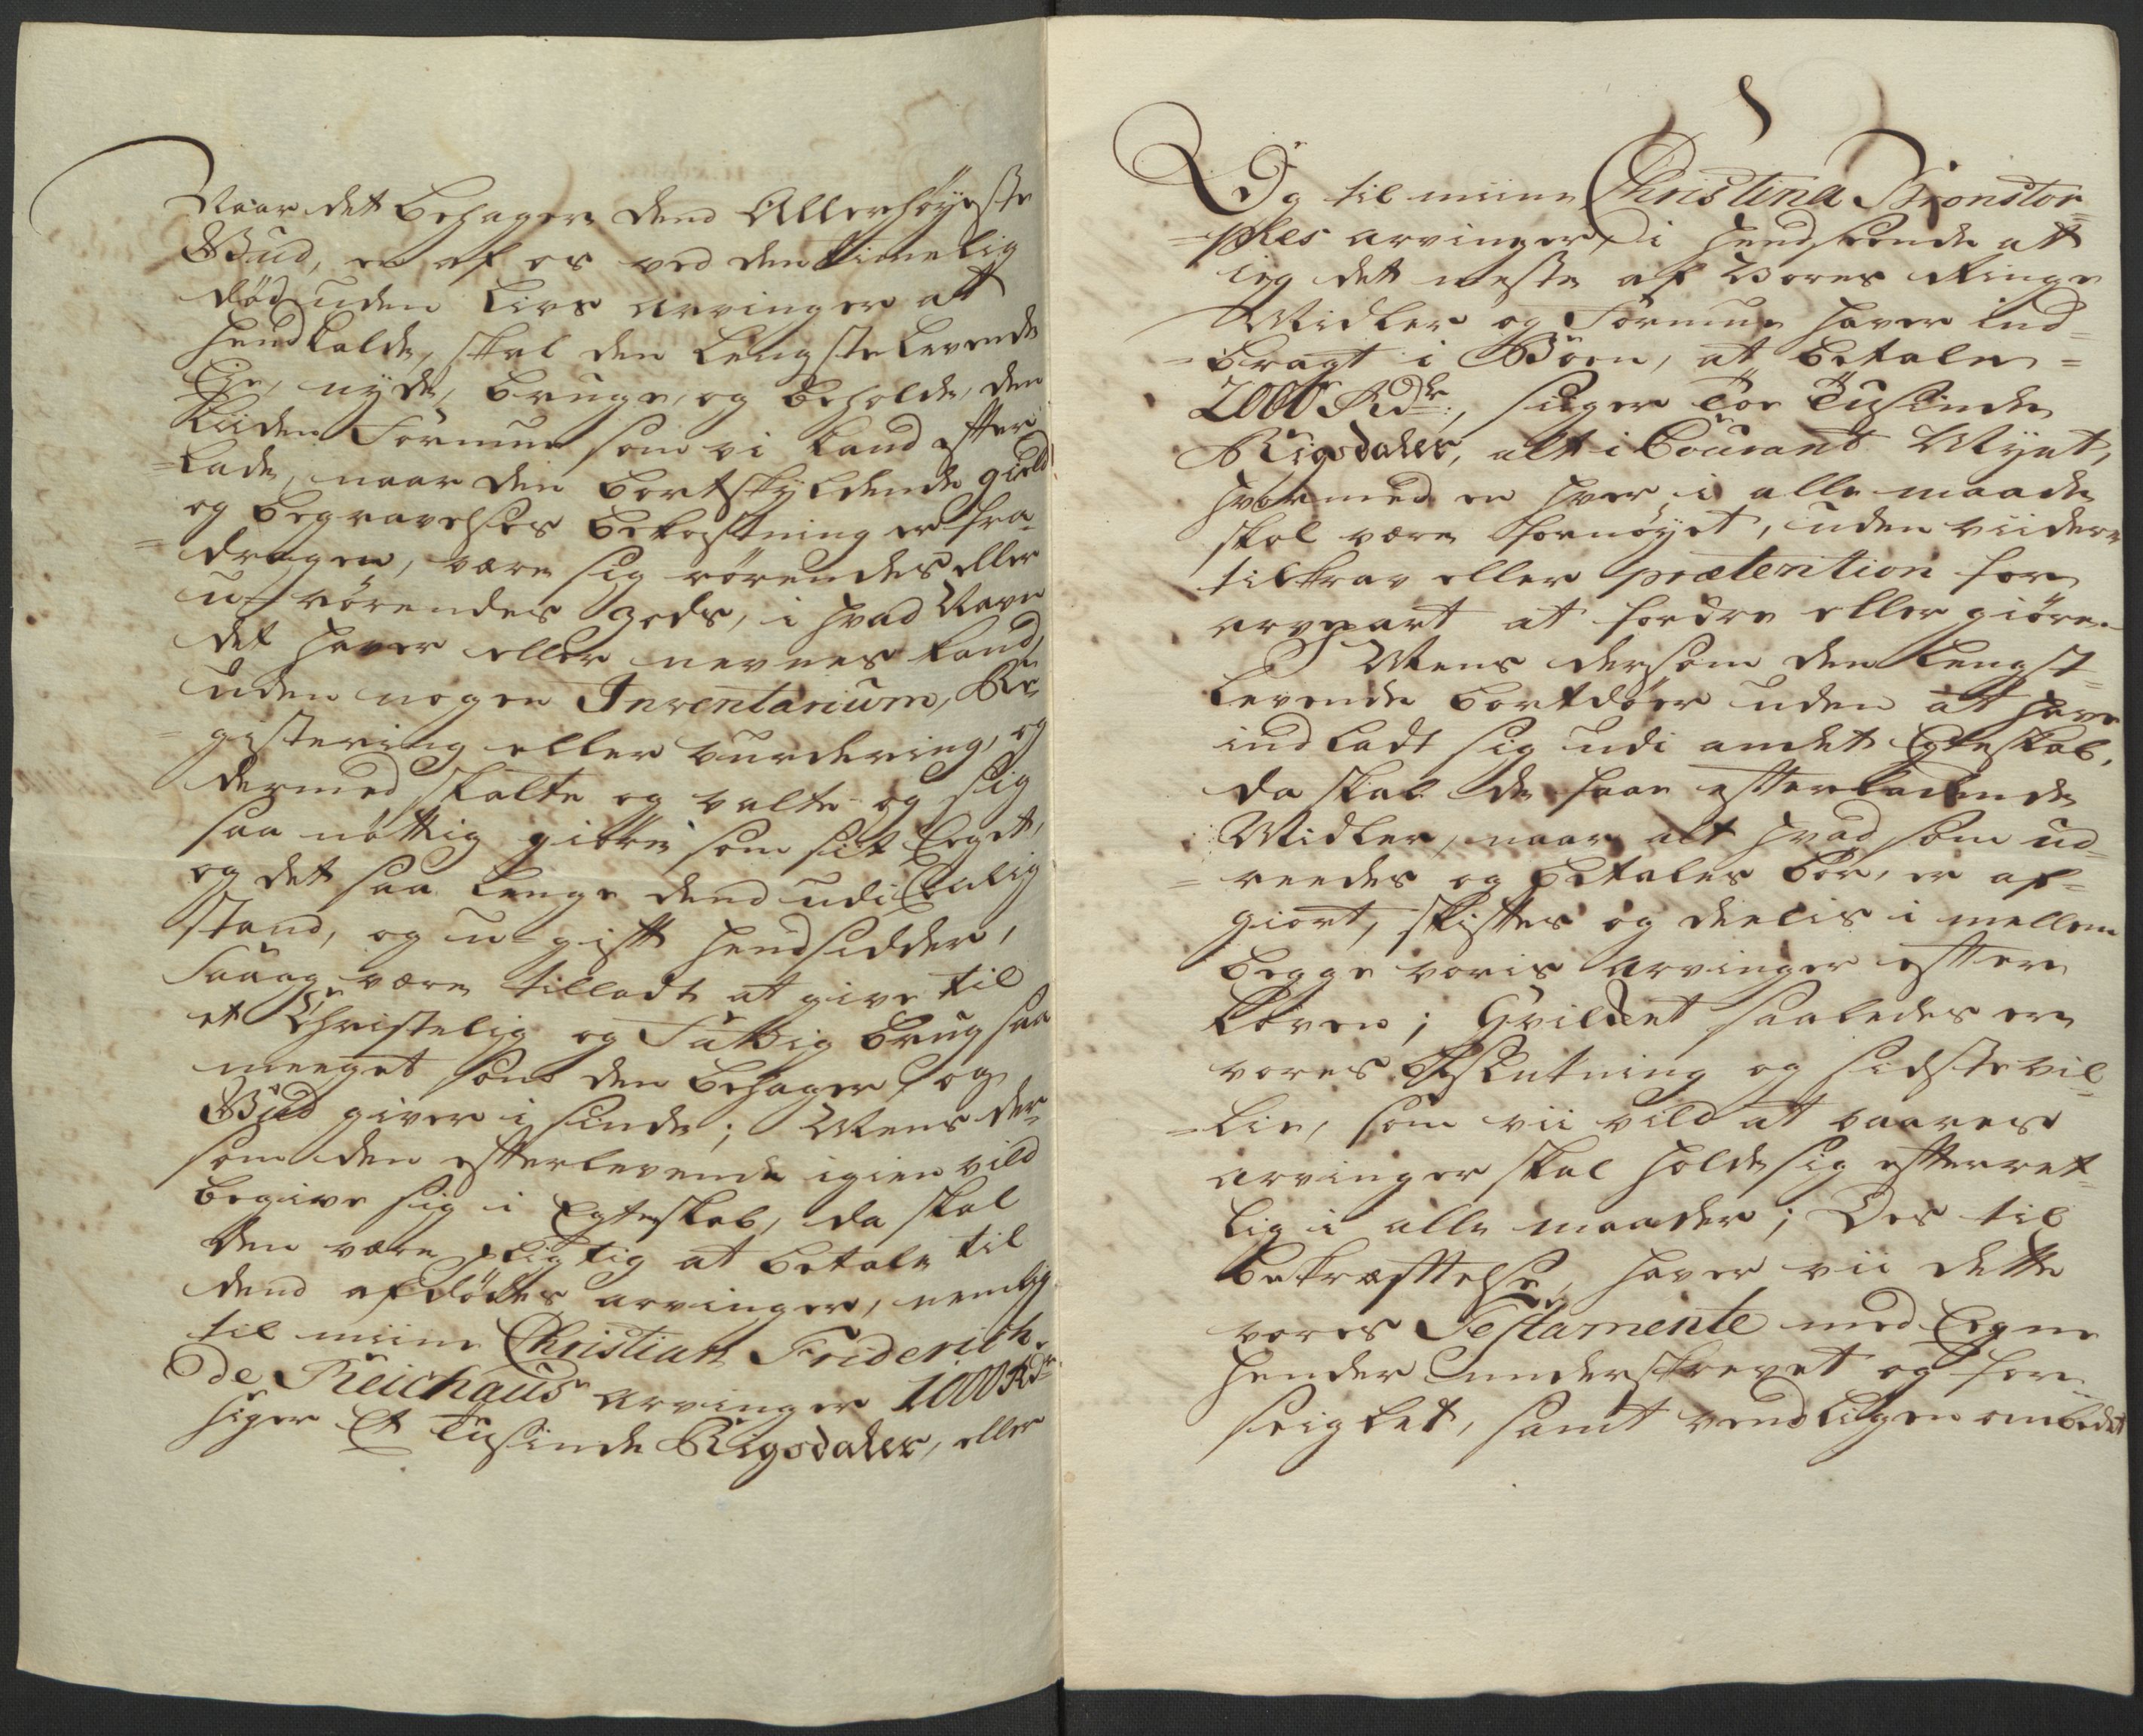 Naar det behager dend Allerhöyeste
Gud, en af os ved den timelig
död uden Livs arvinger at
hendkalde, skal den Lengstlevende
Eje, nyde, bruge, og beholde, den
Liiden Formue som vi kand effter
=lade, naar den bortskyldende gield
og begravelses bekostning er fra
=dragen, være sig rörendes eller
u-rörendes gods, i hvad Navn
det haver eller nevnes kand,
uden nogen Inventarium, Re
gistering eller vurdering, og
dermed skalte og valte og sig
saa nöttig giöre som sit Eeget,
og det saa lenge dend udi Enlig
stand, og u-gift hendsidder,
Saa og være tilladt at give til
et Christelig og Fattig brug saa
meeget som den behager, og
Gud giver i sinde; Mens der
som den effterlevende igien vild
begive sig i Egteskab, da skal
den være pligtig at betale til
dend afdödes arvinger, nemlig
til miine Christian Friderich
de Reichaus arvinger 1000 Rdr
siger Et Tusinde Rigsdaler, eller
Og til miine Christina Bronstor
=phes arvinger, i hendseende at
ieg det meste af Vores Ringe
Midler og Formue haver ind=
=bragt i Boen, at betale =
2000 Rdr:, siger Toe Tusinde
Rigsdaler, alt i Courant Mynt,
hvormed en hver i alle maade
skal være fornöyet, uden viidere
tilkrav eller prætention for
arvepart at fordre eller giöre.
Mens dersom den Lengst=
levende bortdöer uden at have
indladt sig udi andet Egteskab,
da skal de saae effterladende
Midler, naar alt hvad som ud=
=reedes og betales bör, er af=
giort, skifftes og deelis i mellem
begge voris arvinger effter
Loven; Hvilket saaledes er
vores Beslutning og sidste vil=
=lie, som vii vild at vaares
arvinger skal holde sig efterret=
lig i alle maader; Des til
bekræfftelse, haver vii dette
vores Testamente med Eegne
hender underskrevet og for=
seiglet, samt vendligen ombedet